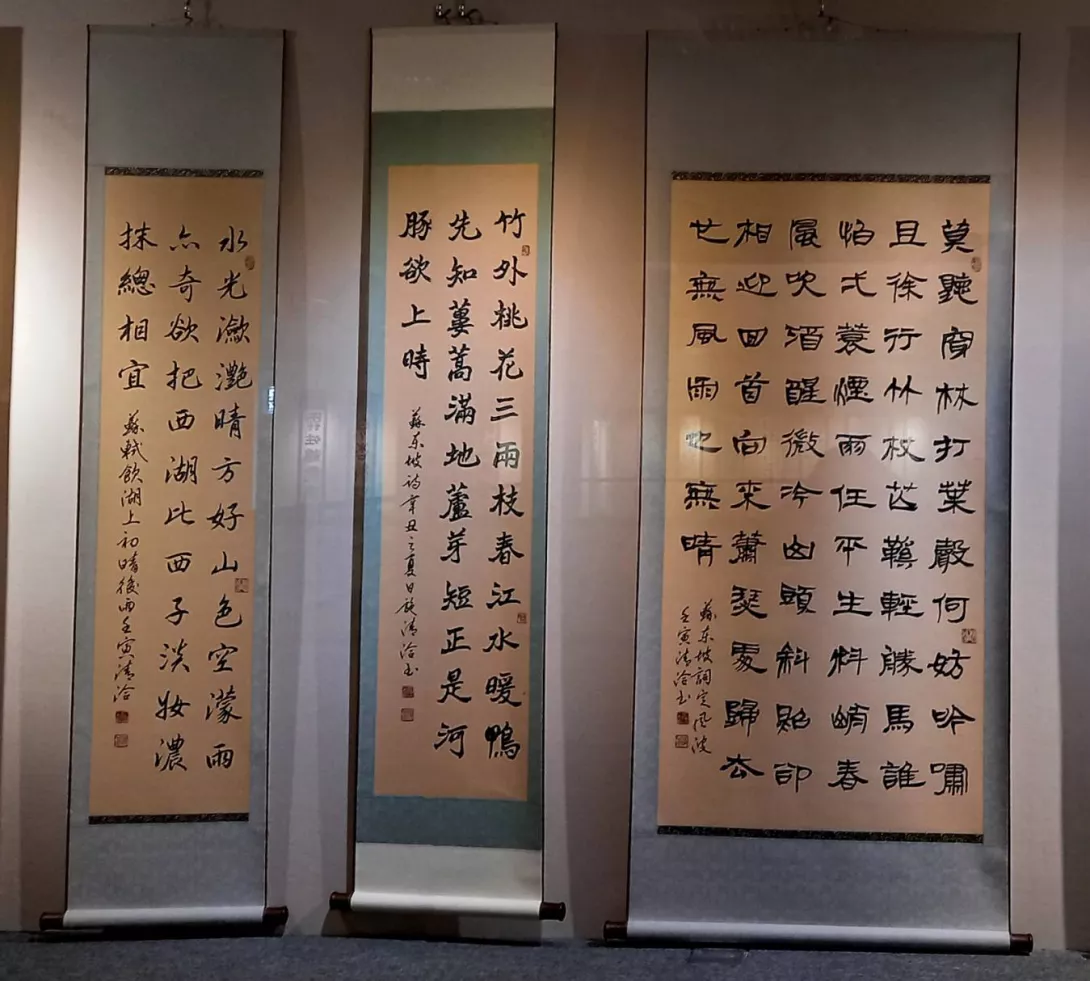 莫聽穿林打葉聲何妨吟嘯
且徐行竹杖芒鞵輕勝馬誰
怕弌蓑煙雨任平生料峭春
風吹酒醒微冷山頭斜照卻
相迎回首向來蕭瑟處歸去
也無風雨也無晴
蘇東坡詞定風波
壬寅清洽書
竹外桃花三兩枝春江水暖鴨
先知蔞蒿滿地蘆芽短正是河
豚欲上時
蘇東坡詩辛丑之夏日施清洽書
水光瀲灧晴方好山色空濛雨
亦奇欲把西湖比西子淡妝濃
抹總相宜
蘇軾飲湖上初晴後雨壬寅清洽